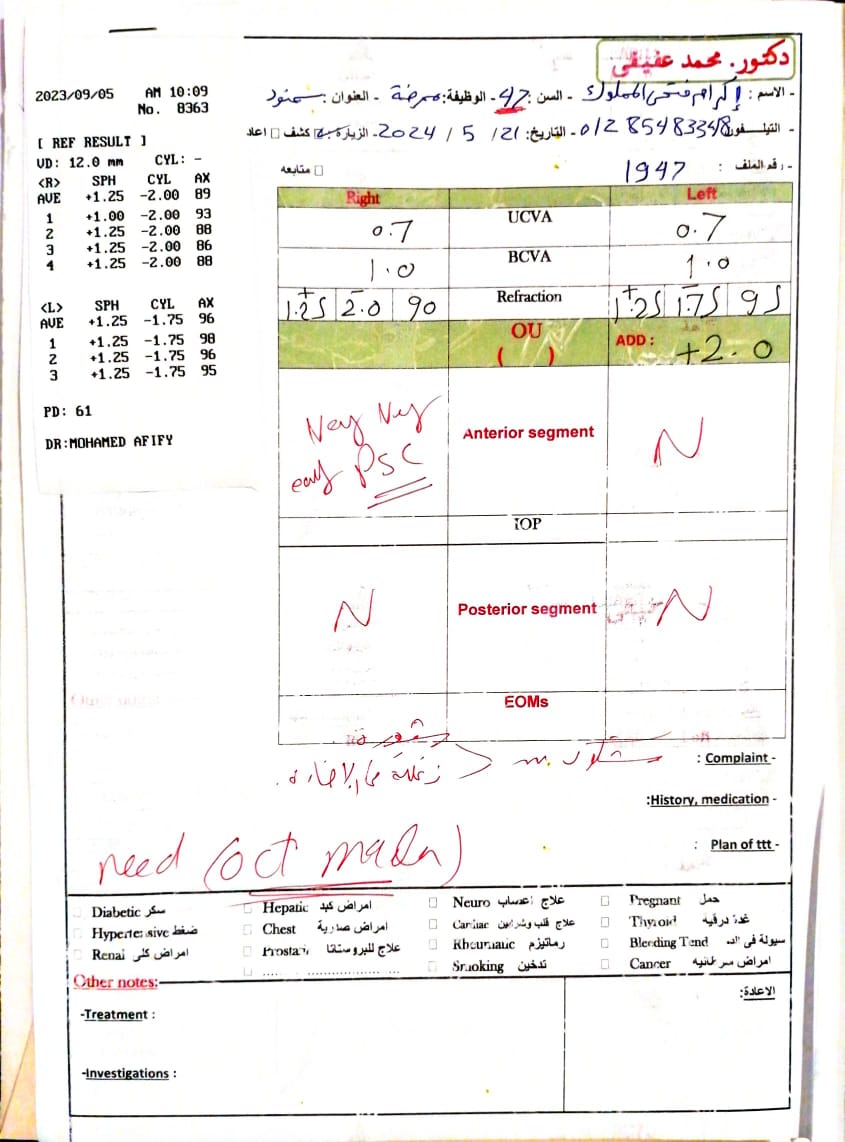 دكتور. محمد عفيفي
- الاسم : إكرام فتحى المملوك - السن : 47 - الوظيفة : ممرضة - العنوان : سمنود
- التيلفون 01285483348 - التاريخ: 21 / 5 / 2024 - الزيارة كشف اعاد
متابعه
- رقم الملف : 1947
2023/09/05 AM 10:09
No. 8363
[ REF RESULT ]
VD: 12.0 mm CYL: -
<R> SPH CYL AX
AVE +1.25 -2.00 89
1 +1.00 -2.00 93
2 +1.25 -2.00 88
3 +1.25 -2.00 86
4 +1.25 -2.00 88
<L> SPH CYL AX
AVE +1.25 -1.75 96
1 +1.25 -1.75 98
2 +1.25 -1.75 96
3 +1.25 -1.75 95
PD: 61
DR:MOHAMED AFIFY
Right Left
0.7 UCVA 0.7
1.0 BCVA 1.0
+1.25 2.0 90 Refraction +1.25 1.75 95
OU ( ) ADD : +2.0
Very Very early PSC Anterior segment N
IOP
N Posterior segment N
EOMs
Complaint -
زغللة
:History, medication -
: Plan of ttt -
need (oct macula)
Diabetic سكر Hepatic امراض كبد Neuro علاج اعصاب Pregnant حمل
Hypertensive ضغط Chest امراض صدرية Cardiac علاج قلب وشرايين Thyroid غدة درقيه
Renal امراض كلى Prostatic علاج للبروستاتا Rheumatic رماتيزم Bleeding Tend سيولة فى الدم
Smoking تدخين Cancer امراض سرطانيه
Other notes:
الاعادة:
-Treatment :
-Investigations :